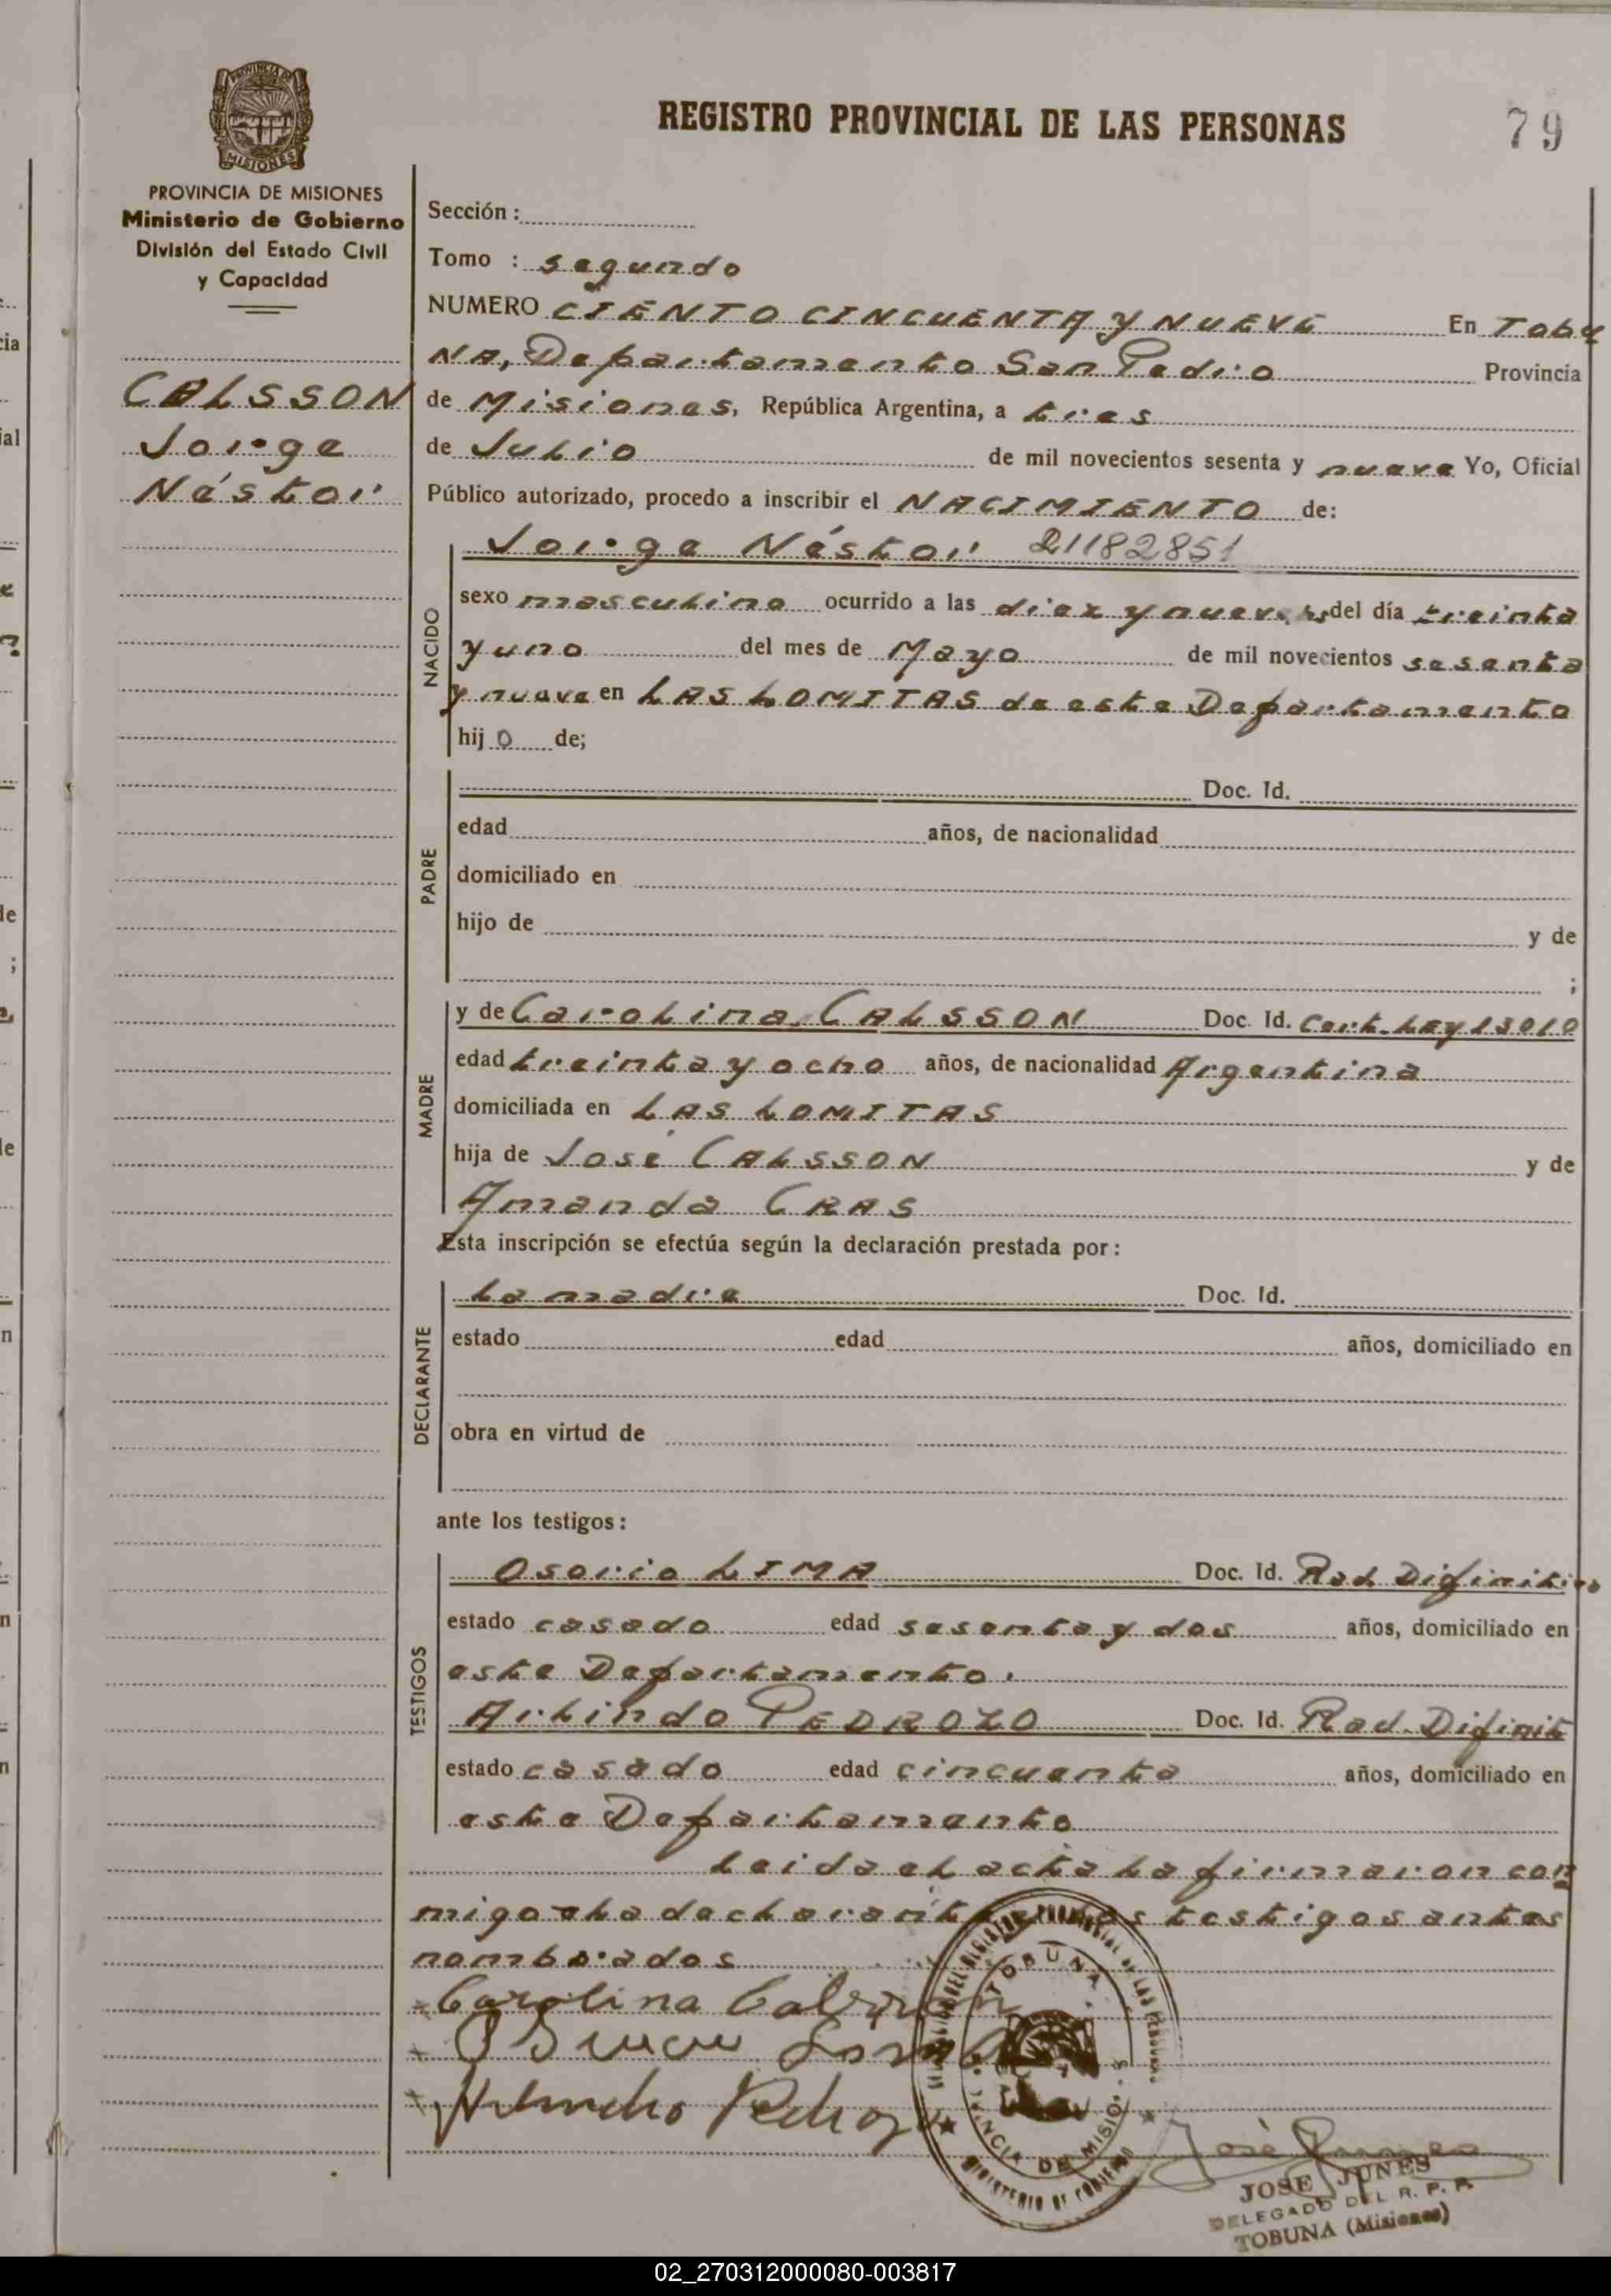 REGISTRO PROVINCIAL DE LAS PERSONAS
79
PROVINCIA DE
MISIONES
PROVINCIA DE MISIONES
Ministerio de Gobierno
División del Estado Civil
y Capacidad
CALSSON
Jorge
Néstor
Sección :
Tomo : segundo
NUMERO CIENTO CINCUENTA y NUEVE En Tobu
NA, Departamento San Pedro Provincia
de Misiones, República Argentina, a tres
de Julio de mil novecientos sesenta y nueve Yo, Oficial
Público autorizado, procedo a inscribir el NACIMIENTO de:
NACIDO
Jorge Néstor 21182851
sexo masculino ocurrido a las diez y nueve hs del día treinta
y uno del mes de Mayo de mil novecientos sesenta
y nueve en LAS LOMITAS de este Departamento
hijo de;
PADRE
Doc. Id.
edad años, de nacionalidad
domiciliado en
hijo de y de
;
MADRE
y de Carolina CALSSON Doc. Id. Cert. LEy 13010
edad treinta y ocho años, de nacionalidad Argentina
domiciliada en LAS LOMITAS
hija de José CALSSON y de
Amanda CRAS
Esta inscripción se efectúa según la declaración prestada por:
DECLARANTE
La madre Doc. Id.
estado edad años, domiciliado en
obra en virtud de
ante los testigos:
TESTIGOS
Osorio LIMA Doc. Id. Rad. Difinitivo
estado casado edad sesenta y dos años, domiciliado en
este Departamento.
Arlindo PEDROZO Doc. Id. Rad. Difinit
estado casado edad cincuenta años, domiciliado en
este Departamento
Leida el acta la firmaron con
migo la declarante testigos antes
nombrados
Carolina
TOBUNA
PROVINCIA DE MISIONES
MINISTERIO DE GOBIERNO
José
JOSE JUNES
DELEGADO DEL R. P. P.
TOBUNA (Misiones)
02_270312000080-003817